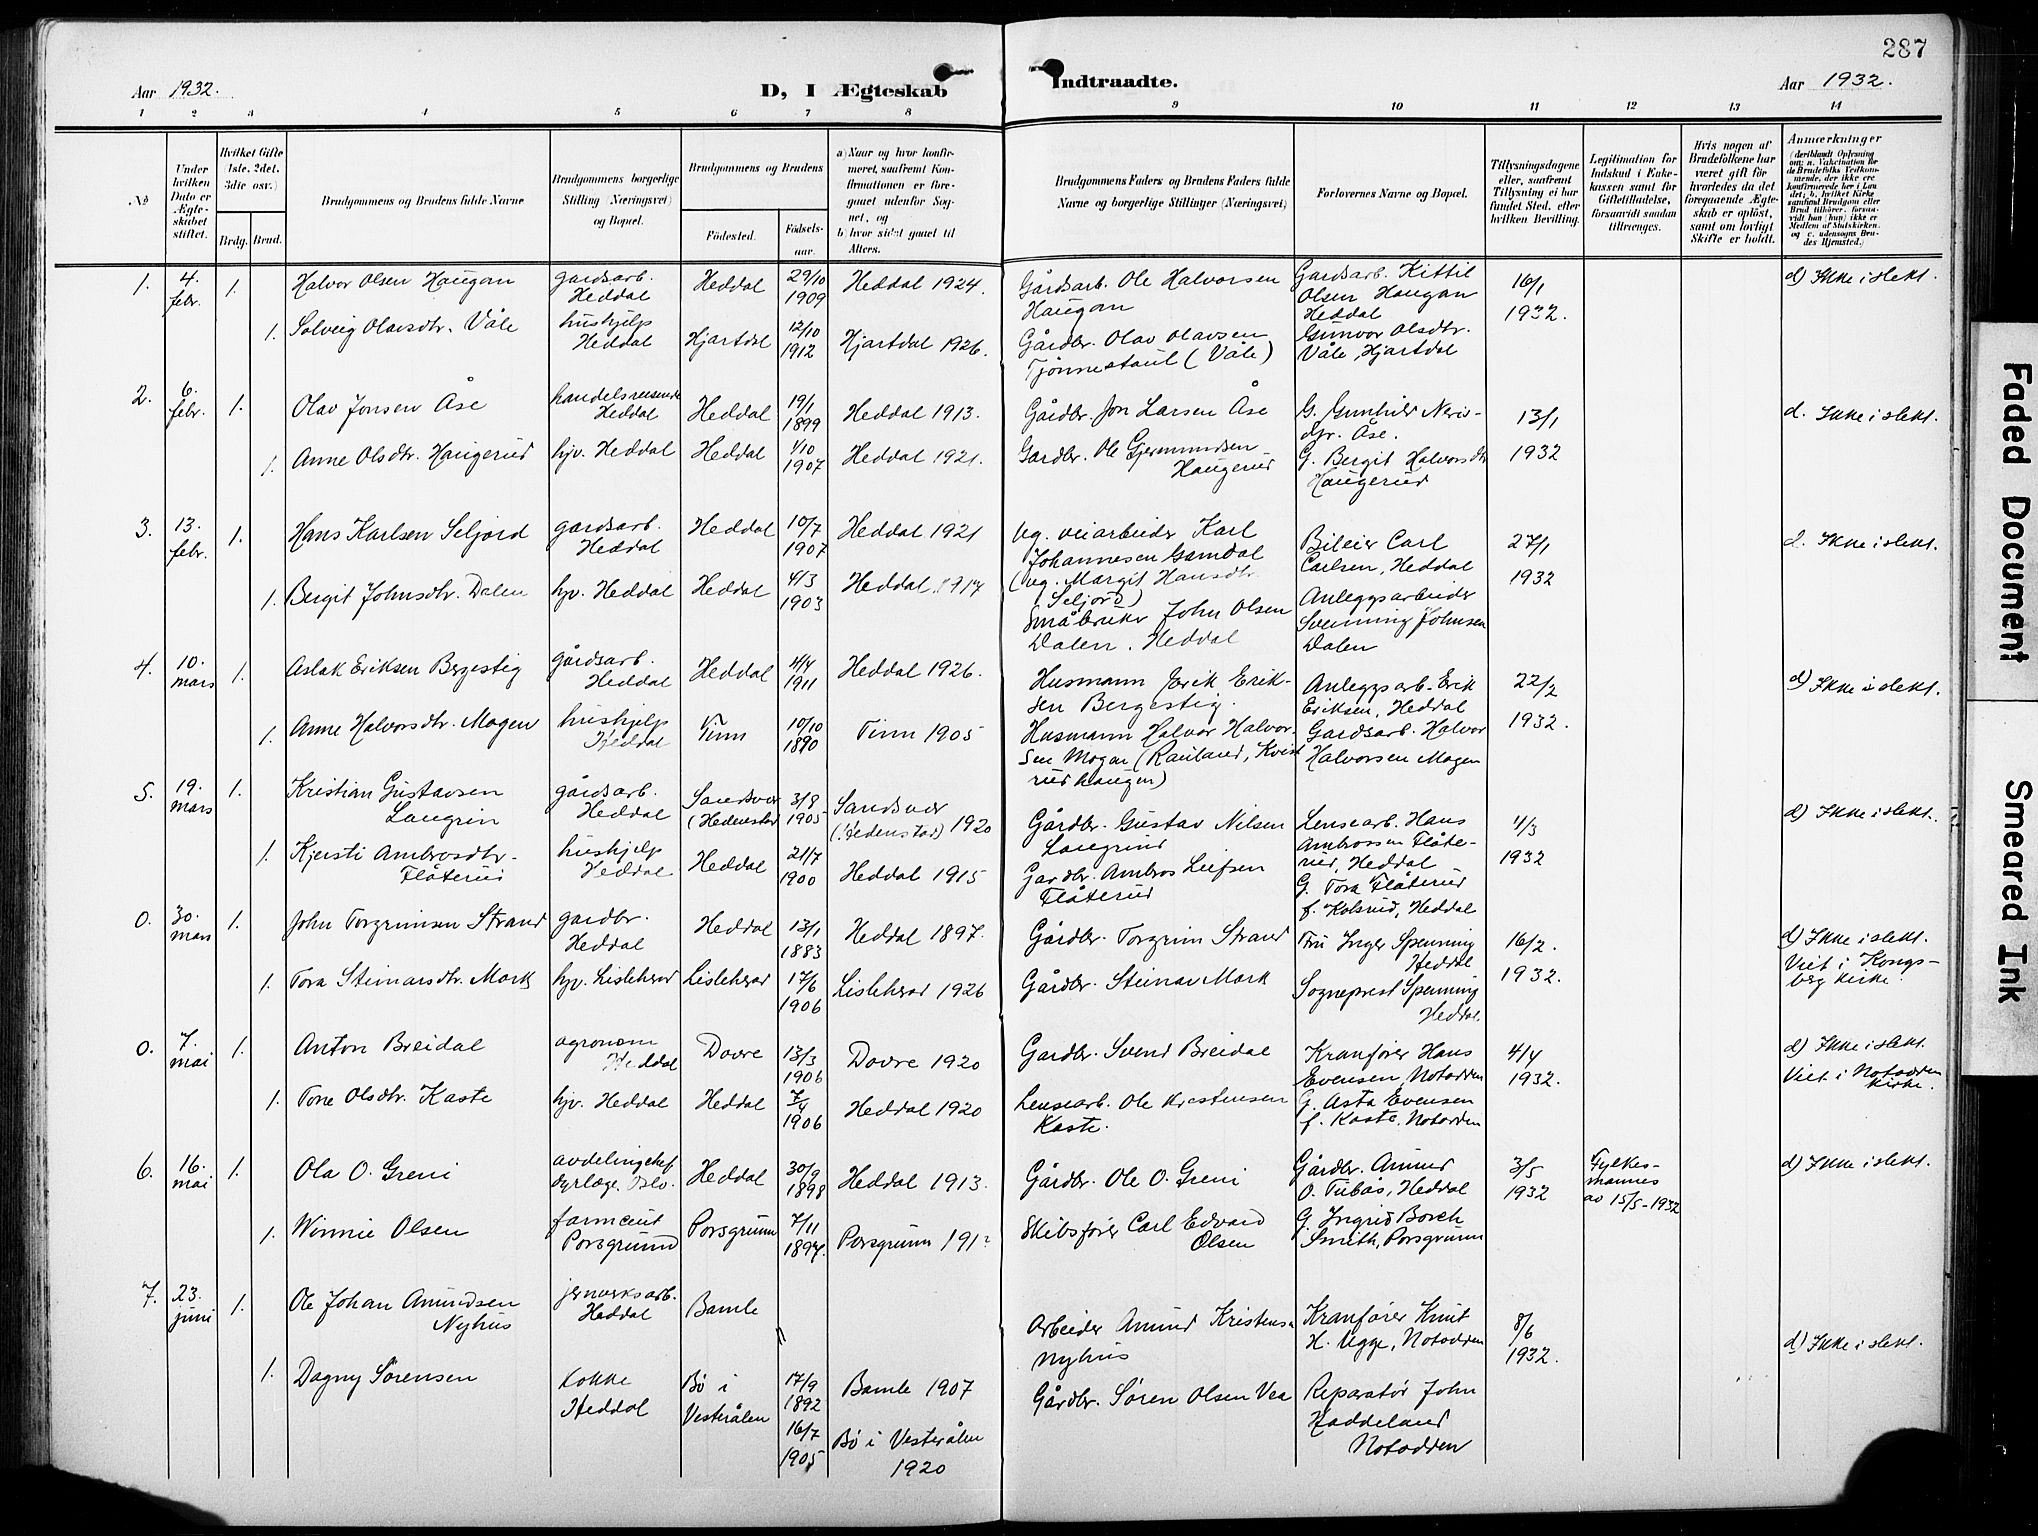 287
Aar 1932.
D, I Ægteskab Indtraadte.
Aar 1932.
1 2 3 4 5 6 7 8 9 10 11 12 13 14
No
Under hvilken Dato er Ægteskabet stiftet.
Hvilket Gifte 1ste, 2det, 3die osv.)
Brdg. Brud.
Brudgommens og Brudens fulde Navne
Brudgommens borgerlige Stilling (Næringsvei) og Bopæl.
Brudgommens og Brudens
Fødested. Fødselsaar.
a) Naar og hvor konfirmeret, saafremt Konfirmationen er foregaaet udenfor Sognet, og
b) hvor sidst gaaet til Alters.
Brudgommens Faders og Brudens Faders fulde Navne og borgerlige Stillinger (Næringsvei)
Forlovernes Navne og Bopæl.
Tillysningsdagene eller, saafremt Tillysning ei har fundet Sted, efter hvilken Bevilling.
Legitimation for Indskud i Enkekassen samt for Giftetilladelse, forsaavidt saadan tiltrænges.
Hvis nogen af Brudefolkene har været gift før hvorledes da det foregaaende Ægteskab er opløst, samt om lovligt Skifte er holdt.
Anmærkninger
(deriblandt Oplysning om: a. Vakcination for de Brudefolks Vedkommende, der ikke ere konfirmerede her i Landet; b. hvilket Kirkesamfund Brudgom eller Brud tilhører, forsaavidt han (hun) ikke er Medlem af Statskirken, og c. udensogns Brudes Hjemsted.)
1. 4. febr. 1. Halvor Olsen Haugan gardsarb. Heddal Heddal 29/10 1909 Heddal 1924. Gårdsarb. Ole Halvorsen Haugan Gardsarb. Kittil Olsen Haugan Heddal 16/1 1932. d) Ikke i slekt.
1. Solveig Olavsdtr. Våle hushjelp Heddal Hjartdal 12/10 1912 Hjartdal 1926. Gårdbr. Olav Olavsen Tjønnestaul (Våle) Gunvor Olsdtr. Våle, Hjartdal
2. 6. febr. 1. Olav Jonsen Åse handelsreisende Heddal Heddal 19/1 1899 Heddal 1913. Gårdbr. Jon Larsen Åse G. Gunhild Neris-dtr. Åse. 13/1 1932 d. Ikke i slekt.
1. Anne Olsdtr. Haugerud hjv. Heddal Heddal 1/10 1907 Heddal 1921. Gardbr. Ole Gjermundsen Haugerud G. Bergit Halvorsdtr Haugerud
3. 13. febr. 1. Hans Karlsen Seljord gardsarb. Heddal Heddal 10/7 1907 Heddal 1921 Ug. veiarbeider Karl Johannesen Gamdal (ug. Margit Hansdtr. Seljord) Bileier Carl Carlsen, Heddal 27/1 1932 d. Ikke i slekt.
1. Bergit Johnsdtr. Dalen hjv. Heddal Heddal 4/3 1903 Heddal 1917 Småbruker John Olsen Dalen, Heddal Anleggsarbeider Svenning Johnsen Dalen
4. 10. mars 1. Aslak Eriksen Bergestig gårdsarb. Heddal Heddal 4/4 1911 Heddal 1926. Husmann Erik Eriksen Bergestig. Anleggsarb. Erik Eriksen, Heddal 22/2 1932. d) Ikke i slekt.
1. Anne Halvorsdtr. Mogen hushjelp Heddal Tinn 10/10 1890 Tinn 1905 Husmann Halvor Halvorsen Mogan (Rauland, Kvistrudhaugen) Gardsarb. Halvor Halvorsen Mogen
5. 19. mars 1. Kristian Gustavsen Langrin gårdsarb. Heddal Sandsvær (Hedenstad 3/8 1905 Sandsvær (Hedenstad) 1920 Gårdbr. Gustav Nilsen Langrind Lensearb. Hans Ambrossen Flåterud, Heddal 4/3 1932 d) Ikke i slekt.
1. Kjersti Ambrosdtr. Flåterud hushjelp Heddal Heddal 21/7 1900 Heddal 1915 Gardbr. Ambros Leifsen Flåterud G. Tora Flåterud f. Kolsrud, Heddal
0. 30. mars 1. John Torgrimsen Strand gardbr. Heddal Heddal 13/1 1883 Heddal 1897. Gårdbr. Torgrim Strand Fru Inger Spenning Heddal 16/2. 1932. d) Ikke i slekt. Viet i Kongsberg kirke.
1. Tora Steinarsdtr. Mork hjv. Lisleherad Lisleherad 17/6 1906 Lisleherad 1926 Gårdbr. Steinar Mork Sogneprest Spenning Heddal.
0. 7. mai 1. Anton Breidal agronom Heddal Dovre 13/3 1906 Dovre 1920 Gardbr. Svend Breidal Kranfører Hans Evensen, Notodden 4/4 1932. d) Ikke i slekt. Viet i Notodden kirke.
1. Tone Olsdtr. Kaste hjv. Heddal Heddal 7/4 1906 Heddal 1920 Lensearb. Ole Kristensen Kaste. G. Asta Evensen f. Kaste, Notodden
6. 16. mai 1. Ola O. Grene avdelingschef dyrlæge. Oslo. Heddal 30/9 1898 Heddal 1913. Gårdbr. Ole O. Grene Gårdbr. Amund O. Tubås, Heddal 3/5 1932 Fylkesmannes av 15/5-1932 d) Ikke i slekt.
1. Winnie Olsen farmceut Porsgrund Porsgrunn 7/11 1897. Porsgrunn 191? Skibsfører Carl Edvard Olsen G. Ingrid Borch Smith, Porsgrunn
7. 23. juni 1. Ole Johan Amundsen Nyhus jernverksarb. Heddal Bamle 17/9 1892 Bamle 1907 Arbeider Amund Kristensen Nyhus Kranfører Knut H. Ugge, Notodden 8/6 1932. d) Ikke i slekt.
1. Dagny Sørensen kokke Heddal Bø i Vesterålen 16/7 1905 Bø i Vesterålen 1920 Gårdbr. Søren Olsen Vea Reparatør John Haddeland Notodden
Faded Document
Smeared Ink